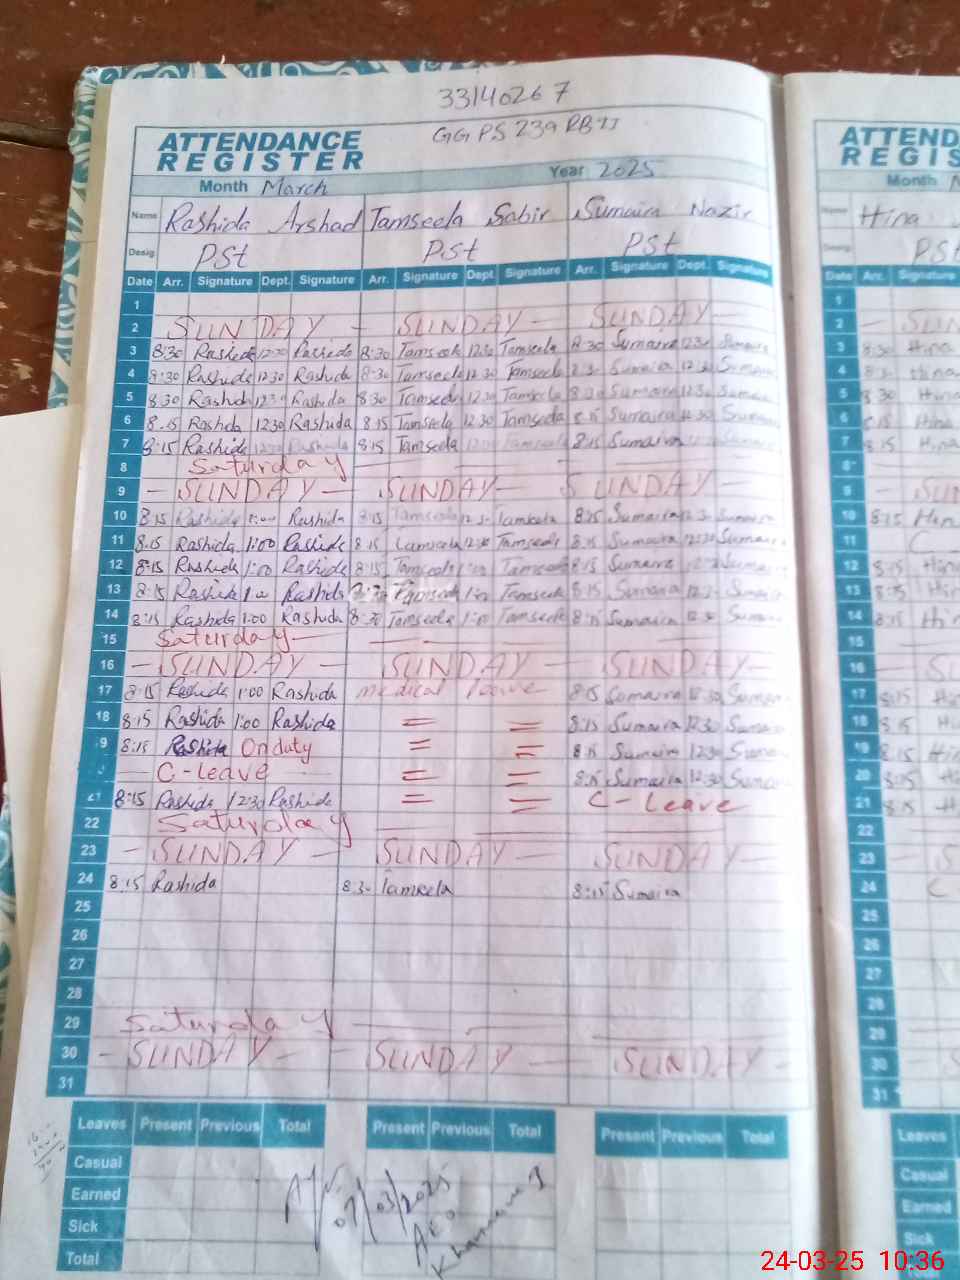 33140267
ATTENDANCE GGPS 239 RB II
REGISTER
Month March Year 2025
Name Rashida Arshad Tamseela Sabir Sumaira Nazir
Desig PSt PSt PSt
Date Arr. Signature Dept. Signature Arr. Signature Dept. Signature Arr. Signature Dept. Signature
1
2 SUNDAY — SUNDAY — SUNDAY —
3 8:30 Rashida 12:30 Rashida 8:30 Tamseela 12:30 Tamseela 8:30 Sumaira 12:30 Sumaira
4 8:30 Rashida 12:30 Rashida 8:30 Tamseela 12:30 Tamseela 8:30 Sumaira 12:30 Sumaira
5 8:30 Rashida 12:30 Rashida 8:30 Tamseela 12:30 Tamseela 8:30 Sumaira 12:30 Sumaira
6 8:15 Rashida 12:30 Rashida 8:15 Tamseela 12:30 Tamseela 8:15 Sumaira 12:30 Sumaira
7 8:15 Rashida 12:30 Rashida 8:15 Tamseela Tamseela 8:15 Sumaira Sumaira
8 Saturday
9 — SUNDAY — SUNDAY — SUNDAY —
10 8:15 Rashida 1:00 Rashida 8:15 Tamseela 12:30 Tamseela 8:15 Sumaira 12:30 Sumaira
11 8:15 Rashida 1:00 Rashida 8:15 Tamseela 12:30 Tamseela 8:15 Sumaira 12:30 Sumaira
12 8:15 Rashida 1:00 Rashida 8:15 Tamseela 1:00 Tamseela 8:15 Sumaira Sumaira
13 8:15 Rashida 1:00 Rashida Tamseela 1:00 Tamseela 8:15 Sumaira 12:30 Sumaira
14 8:15 Rashida 1:00 Rashida 8:30 Tamseela 1:00 Tamseela 8:15 Sumaira 12:30 Sumaira
15 Saturday
16 — SUNDAY — SUNDAY — SUNDAY —
17 8:15 Rashida 1:00 Rashida medical leave 8:15 Sumaira 12:30 Sumaira
18 8:15 Rashida 1:00 Rashida = = 8:15 Sumaira 12:30 Sumaira
9 8:15 Rashida On duty = = 8:15 Sumaira 12:30 Sumaira
— C-leave — = = 8:15 Sumaira 12:30 Sumaira
21 8:15 Rashida 12:30 Rashida = = C-Leave
22 Saturday
23 — SUNDAY — SUNDAY — SUNDAY —
24 8:15 Rashida 8:30 Tamseela 8:15 Sumaira
25
26
27
28
29 Saturday
30 — SUNDAY — SUNDAY — SUNDAY —
31
Leaves Present Previous Total Present Previous Total Present Previous Total
Casual
Earned
Sick
Total
07/03/2025
AEO
ATTEND
REGIS
Month
Name Hina
Desig PSt
Date Arr. Signature
1
2 — SUN
3 8:30 Hina
4 8:30 Hina
5 8:30 Hina
6 8:15 Hina
7 8:15 Hina
8
9 — SUN
10 8:15 Hina
11 C
12 8:15 Hina
13 8:15 Hin
14 8:15 Hin
15
16 — SU
17 8:15 Hi
18 8:15 Hi
19 8:15 Hin
20 8:15 H
21 8:15 H
22
23 — S
24 C
25
26
27
28
29
30 — S
31
Leaves
Casual
Earned
Sick
24-03-25 10:36